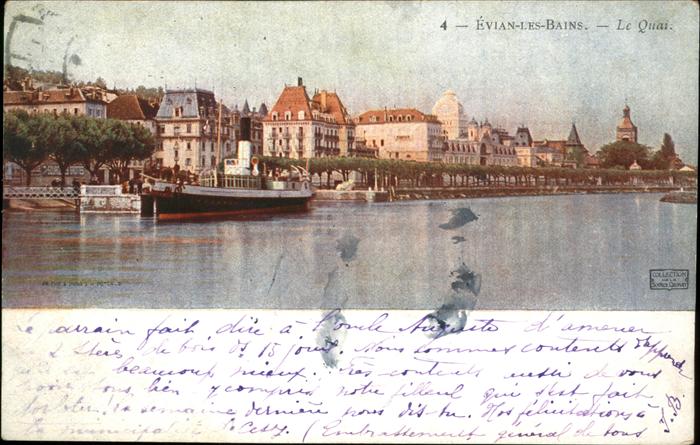 4 — ÉVIAN-LES-BAINS. — Le Quai.
COLLECTION
DE LA
SOURCE CACHAT
Le parrain fait dire à l'oncle Auguste d'amener
2 stères de bois de 15 jours. Nous sommes contents d'apprendre
beaucoup mieux. Très contents aussi de vous
tous bien y compris notre filleul qui s'est fait
la semaine dernière nous dis-tu. Nos félicitations à
la municipalité de Cessy. (Embrassement général de tous
J.B